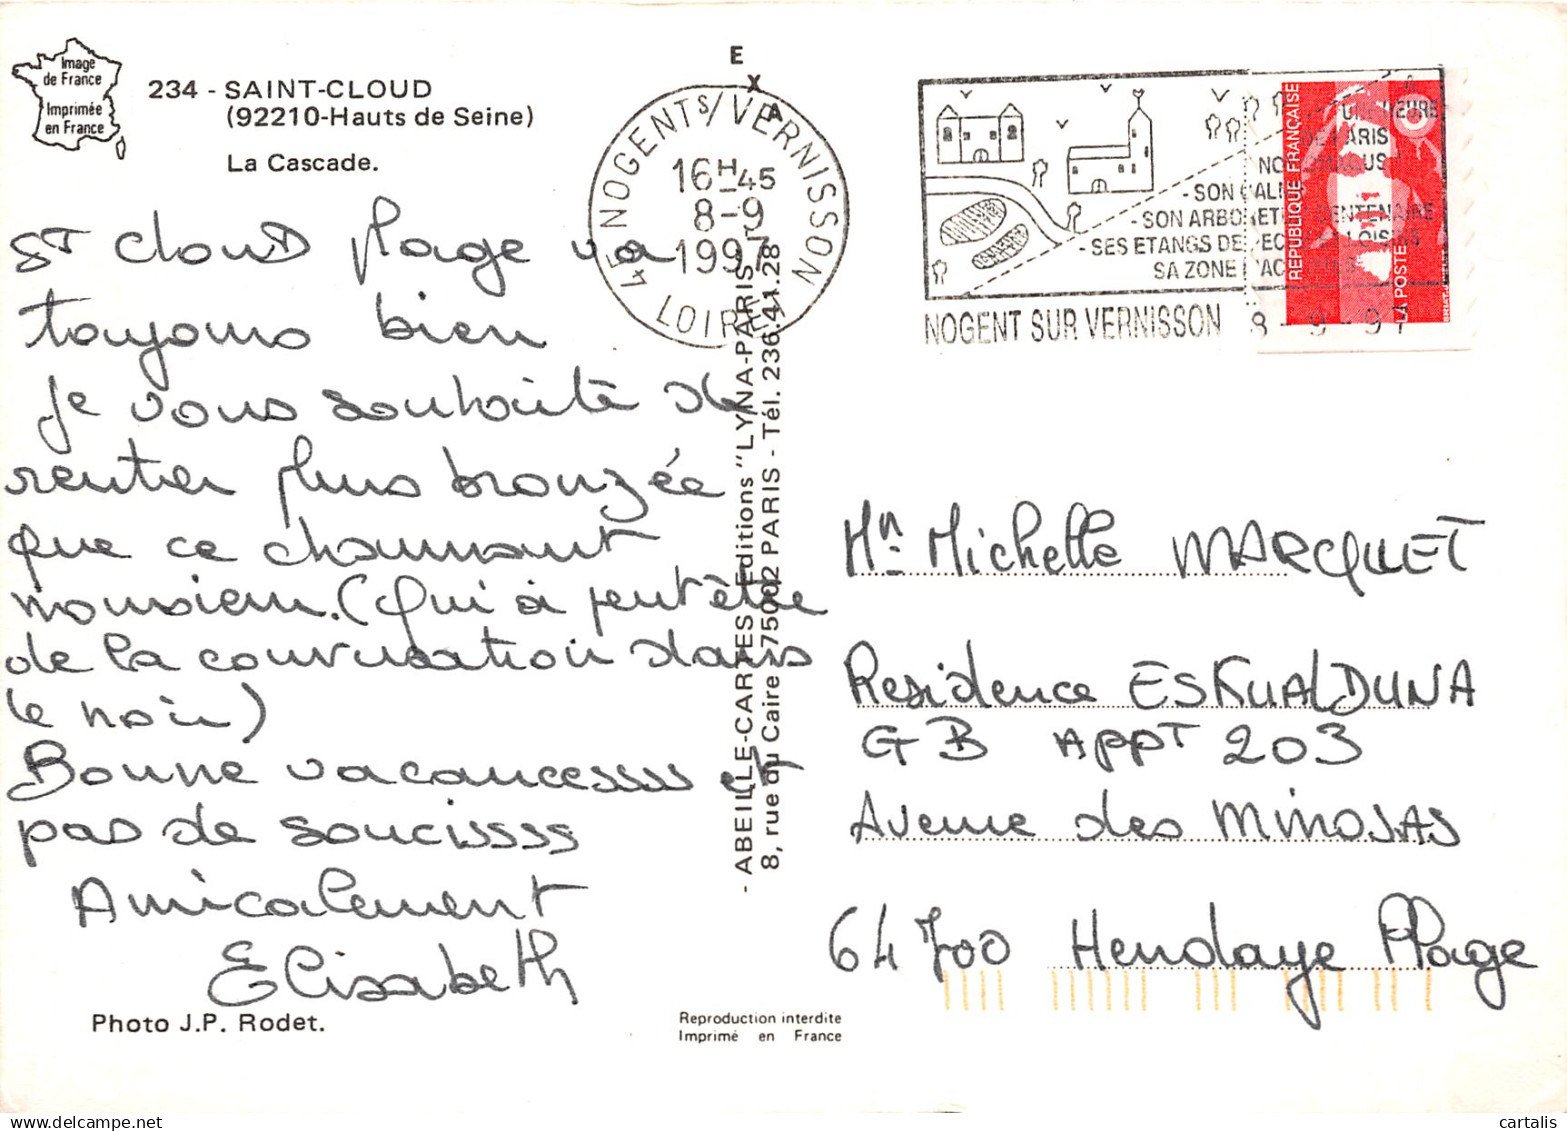 Image
de France
Imprimée
en France
234 - SAINT-CLOUD
(92210-Hauts de Seine)
La Cascade.
ST Cloud Plage va
toujours bien
Je vous souhaite de
rentrer plus bronzée
que ce charmant
monsieur. (Qui a peut être
de la conversation dans
le noir)
Bonne vacancessss et
pas de soucissss
Amicalement
Elisabeth
Photo J.P. Rodet.
EXA
- ABEILLE-CARTES Editions "LYNA-PARIS"
8, rue du Caire - 75002 PARIS - Tél. 236.41.28
Reproduction interdite
Imprimé en France
45 NOGENT S/ VERNISSON
16H45
8-9
1997
LOIRET
UNE HEURE
DE PARIS
- SON
- SON ARBORETUM CENTENAIRE
- SES ETANGS DE
SA ZONE
NOGENT SUR VERNISSON 8-9-97
REPUBLIQUE FRANÇAISE
LA POSTE
Mn Michelle MARCQUET
Residence ESKUALDUNA
GB APPT 203
Avenue des MIMOSAS
64700 Hendaye Plage
cartalis